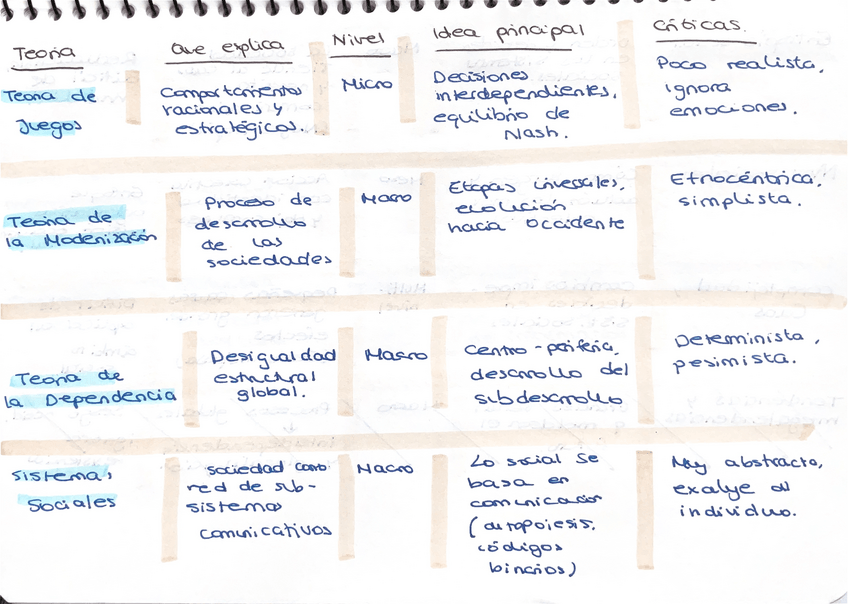 Teoría
Que explica
Nivel
Idea principal
Críticas.
Teoría de
Juegos
Comportamientos
racionales y
estratégicos.
Micro
Decisiones
interdependientes,
equilibrio de
Nash.
Poco realista,
ignora
emociones.
Teoría de
la Modenización
Proceso de
desarrollo
de las
sociedades
Macro
Etapas universales,
evolución
hacia Occidente
Etnocéntrica,
simplista.
Teoría de
la Dependencia
Desigualdad
estructural
global.
Macro
Centro-periferia,
desarrollo del
subdesarrollo
Determinista,
pesimista.
Sistemas
Sociales
sociedad como
red de sub-
sistemas
comunicativos
Macro
Lo social se
basa en
comunicación
(autopoiesis,
códigos
binarios)
Muy abstracto,
excluye al
individuo.